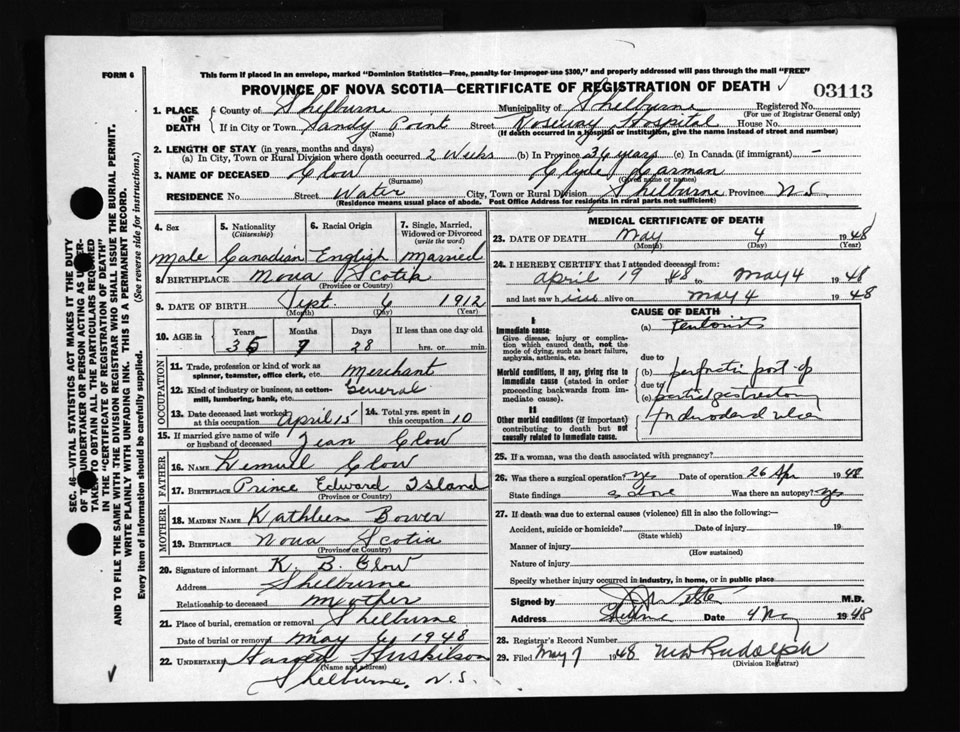 FORM 6
This form if placed in an envelope, marked "Dominion Statistics—Free, penalty for improper use $300," and properly addressed will pass through the mail "FREE"
PROVINCE OF NOVA SCOTIA—CERTIFICATE OF REGISTRATION OF DEATH 03113
1. PLACE OF DEATH County of Shelburne Municipality of Shelburne Registered No.
(For use of Registrar General only)
If in City or Town Sandy Point Street Roseway Hospital House No.
(Name) (If death occurred in a hospital or institution, give the name instead of street and number)
2. LENGTH OF STAY (in years, months and days)
(a) In City, Town or Rural Division where death occurred 2 Weeks (b) In Province 36 years (c) In Canada (if immigrant) —
3. NAME OF DECEASED Clow Clyde Carman
(Surname) (Given name or names)
RESIDENCE No. Street Water City, Town or Rural Division Shelburne Province N.S.
(Residence means usual place of abode. Post Office Address for residents in rural parts not sufficient)
4. Sex 5. Nationality (Citizenship) 6. Racial Origin 7. Single, Married, Widowed or Divorced (write the word)
Male Canadian English Married
8. BIRTHPLACE Nova Scotia
(Province or Country)
9. DATE OF BIRTH Sept. 6 1912
(Month) (Day) (Year)
10. AGE IN Years Months Days If less than one day old
35 7 28 hrs. or min.
OCCUPATION
11. Trade, profession or kind of work as spinner, teamster, office clerk, etc. Merchant
12. Kind of industry or business, as cotton-mill, lumbering, bank, etc. General
13. Date deceased last worked at this occupation April 15 14. Total yrs. spent in this occupation 10
15. If married give name of wife or husband of deceased Jean Clow
FATHER
16. NAME Lemuel Clow
17. BIRTHPLACE Prince Edward Island
(Province or Country)
MOTHER
18. MAIDEN NAME Kathleen Bower
19. BIRTHPLACE Nova Scotia
(Province or Country)
20. Signature of informant K. B. Clow
Address Shelburne
Relationship to deceased Mother
21. Place of burial, cremation or removal Shelburne
Date of burial or removal May 6 1948
22. UNDERTAKER Huskilson
(Name and address)
Shelburne, N.S.
MEDICAL CERTIFICATE OF DEATH
23. DATE OF DEATH May 4 1948
(Month) (Day) (Year)
24. I HEREBY CERTIFY that I attended deceased from:
April 19 1948 to May 4 1948
and last saw him alive on May 4 1948
CAUSE OF DEATH
I
Immediate cause:
Give disease, injury or complication which caused death, not the mode of dying, such as heart failure, asphyxia, asthenia, etc.
(a) Peritonitis
due to
Morbid conditions, if any, giving rise to immediate cause (stated in order proceeding backwards from immediate cause).
(b) post-op
due to
(c) partial gastrectomy
II
Other morbid conditions (if important) contributing to death but not causally related to immediate cause.
duodenal ulcer
25. If a woman, was the death associated with pregnancy?
26. Was there a surgical operation? yes Date of operation 26 Apr 1948
State findings as above Was there an autopsy? yes
27. If death was due to external causes (violence) fill in also the following:—
Accident, suicide or homicide? Date of injury 19
(State which)
Manner of injury
(How sustained)
Nature of injury
Specify whether injury occurred in industry, in home, or in public place
Signed by M.D.
Address Date 4 May 1948
28. Registrar's Record Number
29. Filed May 7 1948 Rudolph
(Division Registrar)
SEC. 46—VITAL STATISTICS ACT MAKES IT THE DUTY
OF THE UNDERTAKER OR PERSON ACTING AS UNDERTAKER TO OBTAIN ALL THE PARTICULARS REQUIRED
IN THE "CERTIFICATE OF REGISTRATION OF DEATH"
AND TO FILE THE SAME WITH THE DIVISION REGISTRAR WHO SHALL ISSUE THE BURIAL PERMIT.
WRITE PLAINLY WITH UNFADING INK. THIS IS A PERMANENT RECORD.
Every item of information should be carefully supplied. (See reverse side for instructions.)